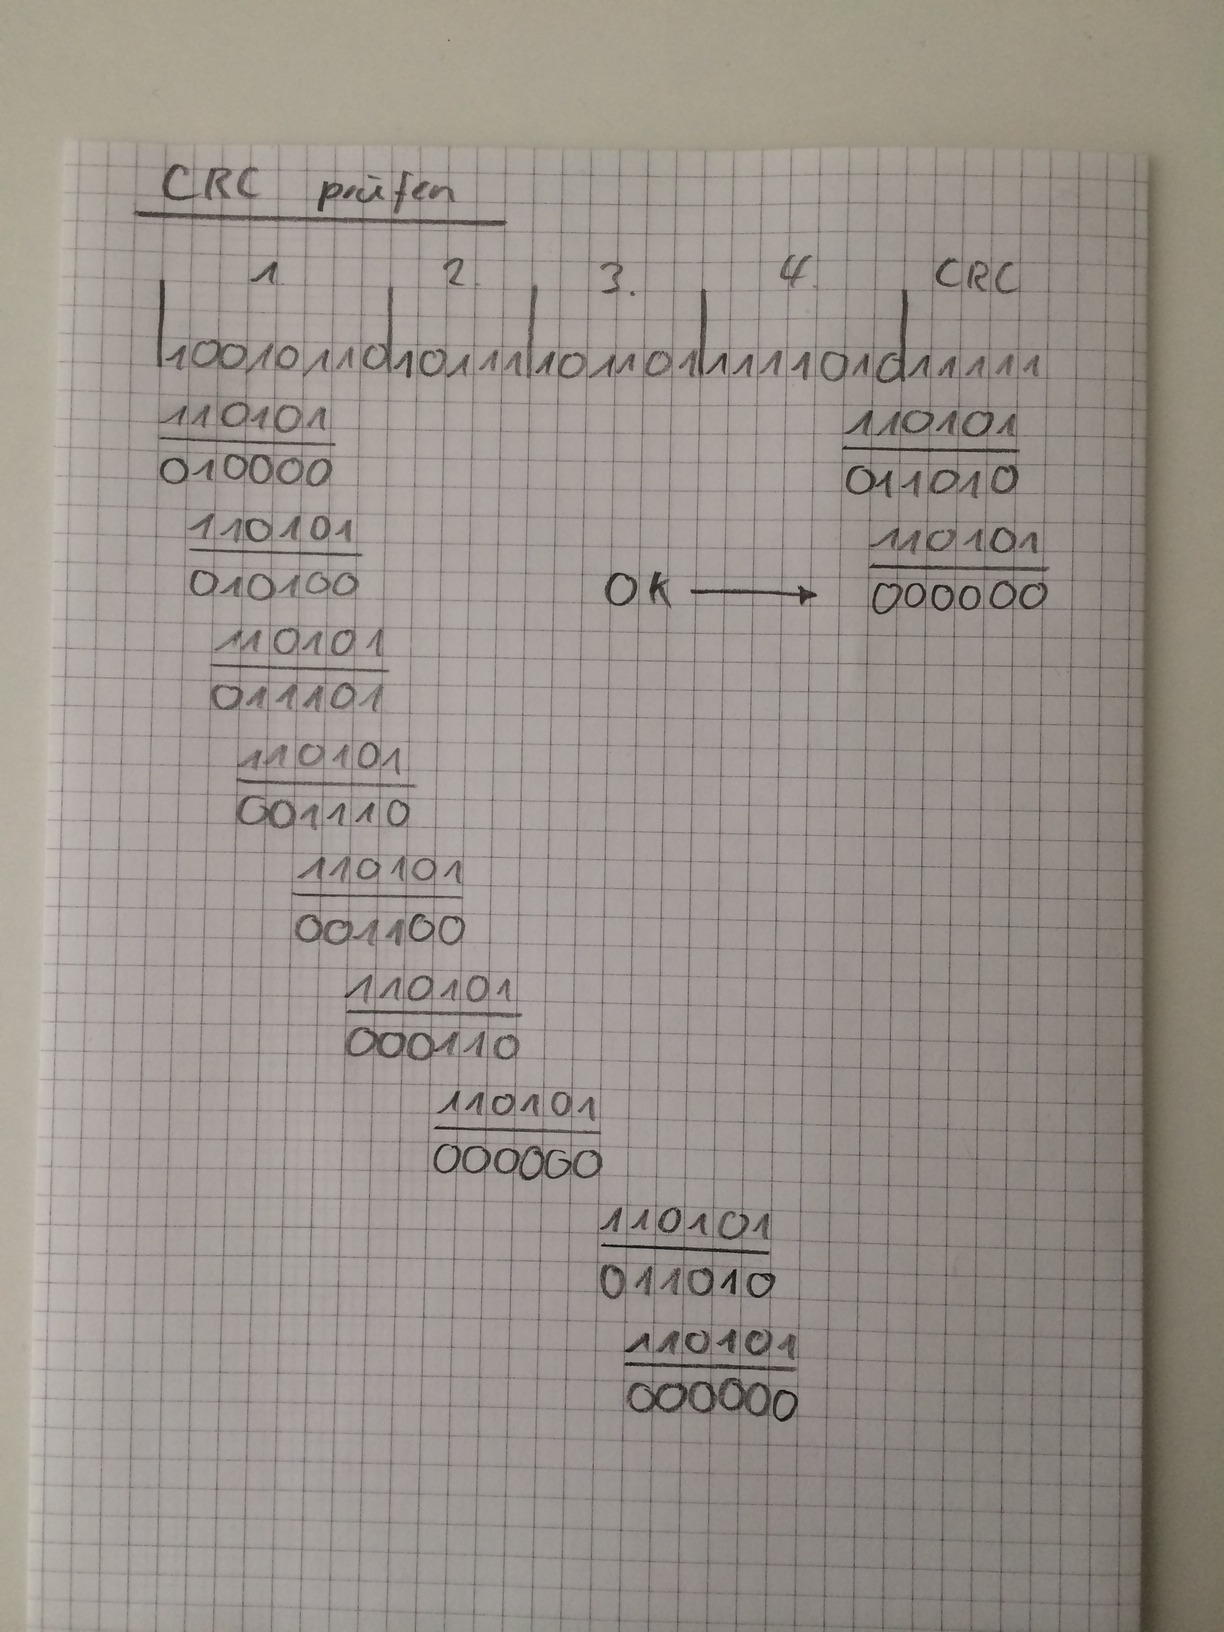 CRC prüfen
1. 2. 3. 4. CRC
1001011010111101101111101011111
110101 110101
010000 011010
110101 110101
010100 OK → 000000
110101
011101
110101
001110
110101
001100
110101
000110
110101
000000
110101
011010
110101
000000